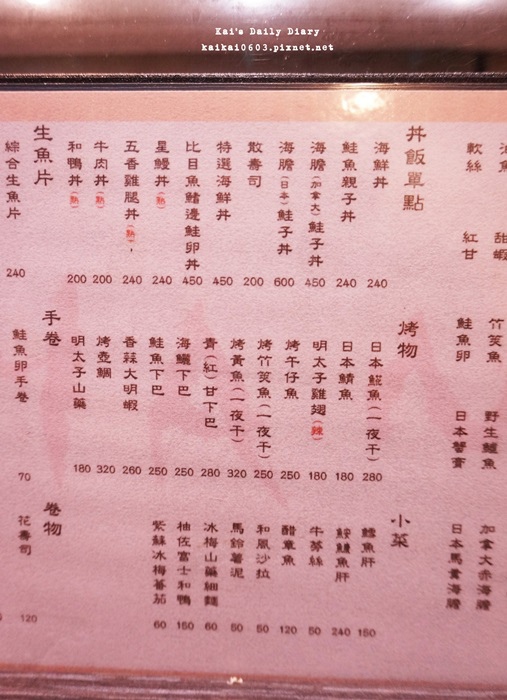 Kai's Daily Diary
kaikai0603.pixnet.net
軟絲
紅甘
甜蝦
鮭魚卵
竹筴魚
日本蟹膏
野生鱸魚
日本馬糞海膽
加拿大赤海膽
丼飯單點
海鮮丼 240
鮭魚親子丼 240
海膽(加拿大)鮭子丼 450
海膽(日本)鮭子丼 600
散壽司 200
特選海鮮丼 450
比目魚鰭邊鮭卵丼 450
星鰻丼(熟) 240
五香雞腿丼(熟) 240
牛肉丼(熟) 200
和鴨丼(熟) 200
生魚片
綜合生魚片 240
烤物
日本鯤魚(一夜干) 280
日本鯖魚 180
明太子雞翅(辣) 180
烤午仔魚 250
烤竹筴魚(一夜干) 250
烤黃魚(一夜干) 320
青(紅)甘下巴 280
海鱺下巴 250
鮭魚下巴 250
香蒜大明蝦 260
烤壺鯛 320
明太子山藥 180
手卷
鮭魚卵手卷 70
小菜
鱈魚肝 150
鮟鱇魚肝 240
牛蒡絲 50
醋章魚 120
和風沙拉 50
馬鈴薯泥 50
冰梅山藥細麵 60
柚佐富士和鴨 150
紫蘇冰梅番茄 60
卷物
花壽司 120